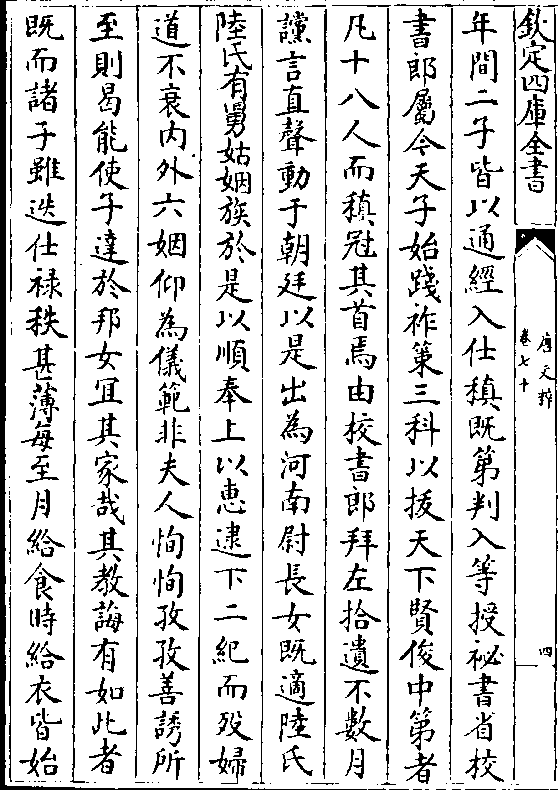 欽定四庫全書
唐文粹
卷七十
四
年間二子皆以通經入仕稹既第判入等授祕書省校
書郎屬今天子始踐祚策三科以拔天下賢俊中第者
凡十八人而稹冠其首焉由校書郎拜左拾遺不數月
讜言直聲動于朝廷以是出為河南尉長女既適陸氏
陸氏有舅姑姻族於是以順奉上以惠逮下二紀而歿婦
道不衰内外六姻仰為儀範非夫人恂恂孜孜善誘所
至則曷能使子達於邦女宜其家哉其教誨有如此者
既而諸子雖迭仕禄秩甚薄每至月給食時給衣皆始